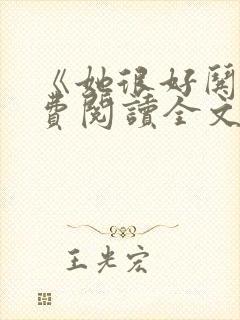 《她很好闻
費閱讀全文
王光宏